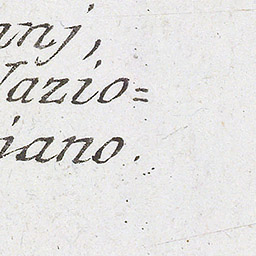 nnj,
Nazio=
iano.